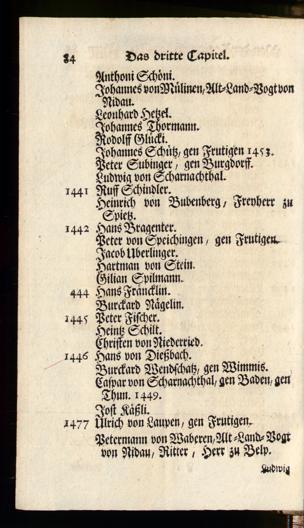 84 Das dritte Capitel.
Anthoni Schöni.
Johannes von Mülinen/Alt-Land-Vogt von
Nidau.
Leonhard Hetzel.
Johannes Thormann.
Rodolff Glücki.
Johannes Schütz, gen Frutigen 1453.
Peter Subinger, gen Burgdorff.
Ludwig von Scharnachthal.
1441 Ruff Schindler.
Heinrich von Bubenberg, Freyherr zu
Spietz.
1442 Hans Bragenter.
Peter von Speichingen, gen Frutigen.
Jacob Uberlinger.
Hartman von Stein.
Gilian Spilmann.
444 Hans Francklin.
Burckard Nägelin.
1445 Peter Fischer.
Heintz Schilt.
Christen von Niederried.
1446 Hans von Dießbach.
Burckard Wendschatz, gen Wimmis.
Caspar von Scharnachthal, gen Baden, gen
Thun. 1449.
Jost Käßli.
1477 Ulrich von Laupen, gen Frutigen.
Petermann von Waberen/Alt-Land-Vogt
von Nidau, Ritter, Herr zu Belp.
Ludwig